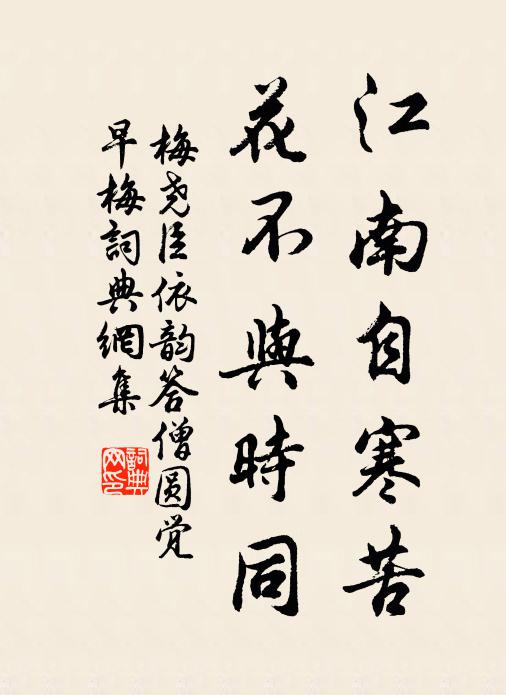 江南自寒苦
花不與時同
梅尧臣依韵答僧圆觉
早梅詞典網集
詞典
网印